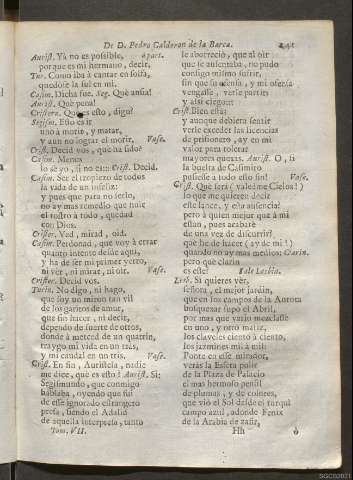 De D. Pedro Calderon de la Barca. 241
Aurist. Yà no es possible, àpart.
porque es mi hermano, decir,
Tur. Como iba à cantar en solfa,
quedose la sul en mi.
Casim. Dicha fue. Seg. Què ansia!
Aurist. Què pena!
Cristern. Què es esto, digo?
Segism. Esto es ir
uno à morir, y matar,
y aun no lograr el morir. Vase.
Crist. Decid vos, què ha sido?
Casim. Menos
lo sè yo, si no es::- Crist. Decid.
Casim. Ser el tropiezo de todos
la vida de un infeliz:
y pues que para no serlo,
no ay mas remedio que huir
el rostro à todo, quedad
con Dios.
Crister. Ved, mirad, oid.
Casim. Perdonad, que voy à errar
quanto intento desde aqui,
y ha de ser mi primer yerro,
ni ver, ni mirar, ni oir. Vase.
Crister. Decid vos.
Turin. No digo, ni hago,
que soy un miron tan vil
de los garitos de amar,
que sin hacer, ni decir,
dependo de suerte de otros,
donde à merced de un quatrin,
traygo mi vida en un tris,
y mi caudal en un tris. Vase.
Crist. En fin, Auristela, nadie
me dice, què es esto? Aurist. Si:
Segismundo, que conmigo
hablaba, oyendo que fui
de esse ignorado estrangero
presa, siendo el Adalid
de aquella interpresa, tanto
Tom. VII.
le aborreciò, que al oir
que se ausentaba, no pudo
consigo mismo sufrir,
sin que su ofensa, y mi ofensa
vengasse, verle partir:
y assi ciego::-
Crist. Bien està;
y aunque debiera sentir
verle exceder las licencias
de prisionero, ay en mi
valor para tolerar
mayores quexas. Aurist. O, si
la buelta de Casimiro
pusiesse à todo esso fin! Vase.
Crist. Què serà (valedme Cielos!)
lo que me quieren decir
este lance, y esta ausencia!
pero à quien mejor que à mi
estàn, pues acabarè
de una vez de discurrir,
què he de hacer (ay de mi!)
quando no ay mas medio: Clarin.
pero què clarin
es este? Sale Lesbia.
Lesb. Si quieres ver,
señora, el mejor jardin,
que en los campos de la Aurora
bosquexar supo el Abril,
por mas que vario mezclasse
en uno, y otro matiz,
los claveles ciento à ciento,
los jazmines mil à mil:
Ponte en esse mirador,
veràs la Esfera pulir
de la Plaza de Palacio
el mas hermoso pensil
de plumas, y de colores,
que viò el Sol desde el turquì
campo azul, adonde Fenix
de la Arabia de zafir,
Hh ò